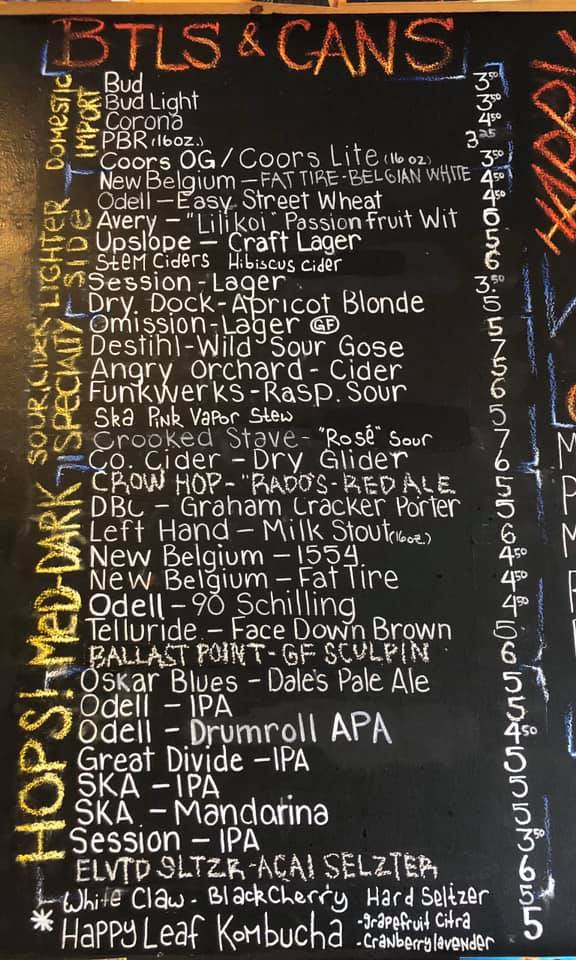 BTLS & CANS
DOMESTIC IMPORT
Bud 3⁵⁰
Bud Light 3⁵⁰
Corona 4⁵⁰
PBR (16oz.) 3²⁵
Coors OG / Coors Lite (16 oz) 3⁵⁰
LIGHTER SIDE
New Belgium - FAT TIRE - BELGIAN WHITE 4⁵⁰
Odell - Easy Street Wheat 4⁵⁰
Avery - "Lilikoi" Passion fruit Wit 6
Upslope - Craft Lager 5
Stem Ciders Hibiscus Cider 6
Session - Lager 3⁵⁰
Dry Dock - Apricot Blonde 5
SOUR/CIDER SPECIALTY
Omission - Lager GF 5
Destihl - Wild Sour Gose 7
Angry Orchard - Cider 5
Funkwerks - Rasp. Sour 6
Ska Pink Vapor Stew 5
Crooked Stave - "Rosé" Sour 7
Co. Cider - Dry Glider 6
MED-DARK
CROW HOP - "RADO'S - RED ALE 5
DBC - Graham Cracker Porter 5
Left Hand - Milk Stout (16oz.) 6
New Belgium - 1554 4⁵⁰
New Belgium - Fat Tire 4⁵⁰
Odell - 90 Schilling 4⁵⁰
Telluride - Face Down Brown 5
BALLAST POINT - GF SCULPIN 6
HOPS!
Oskar Blues - Dale's Pale Ale 5
Odell - IPA 5
Odell - Drumroll APA 4⁵⁰
Great Divide - IPA 5
SKA - IPA 5
SKA - Mandarina 5
Session - IPA 3⁵⁰
ELVTD SLTZR - ACAI SELZTER 6
White Claw - Black Cherry Hard Seltzer 5
* Happy Leaf Kombucha - grapefruit Citra 5
- Cranberry lavender